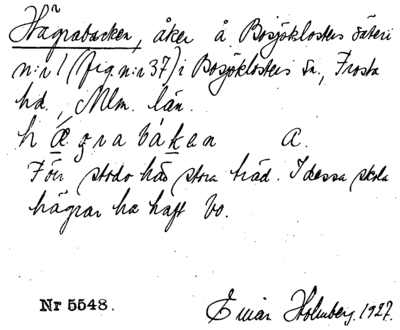 Hägrabacken, åker å Bosjöklosters säteri
n:r 1 (fig n:r 37) i Bosjöklosters sn., Frosta
hd., Mlm. län.
hægrabáken a.
Förr stodo här stora träd. I dessa skola
hägrar ha haft bo.
Nr 5548. Einar Holmberg. 1927.